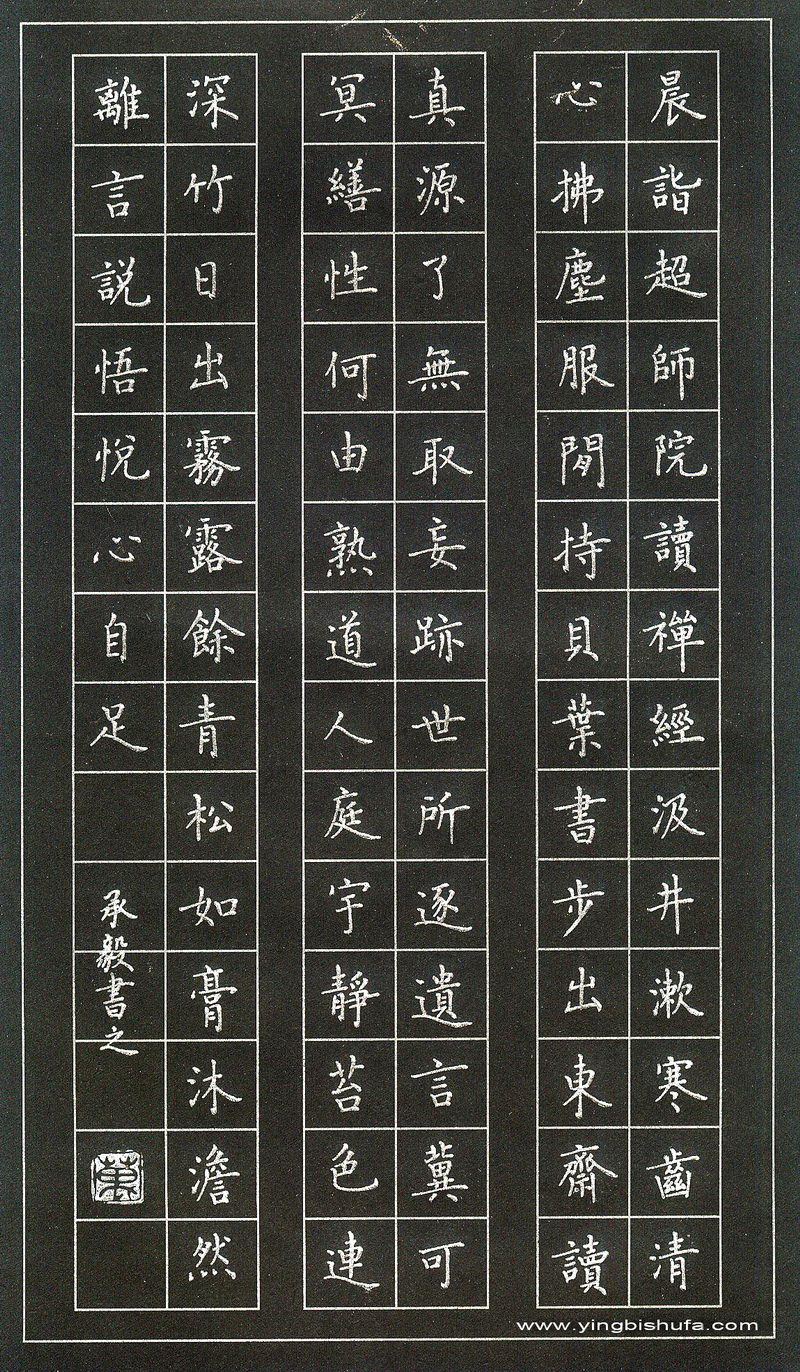 晨詣超師院讀禪經汲井漱寒齒清
心拂塵服閒持貝葉書步出東齋讀
真源了無取妄跡世所逐遺言冀可
冥繕性何由熟道人庭宇靜苔色連
深竹日出霧露餘青松如膏沐澹然
離言說悟悅心自足
承毅書之
www.yingbishufa.com